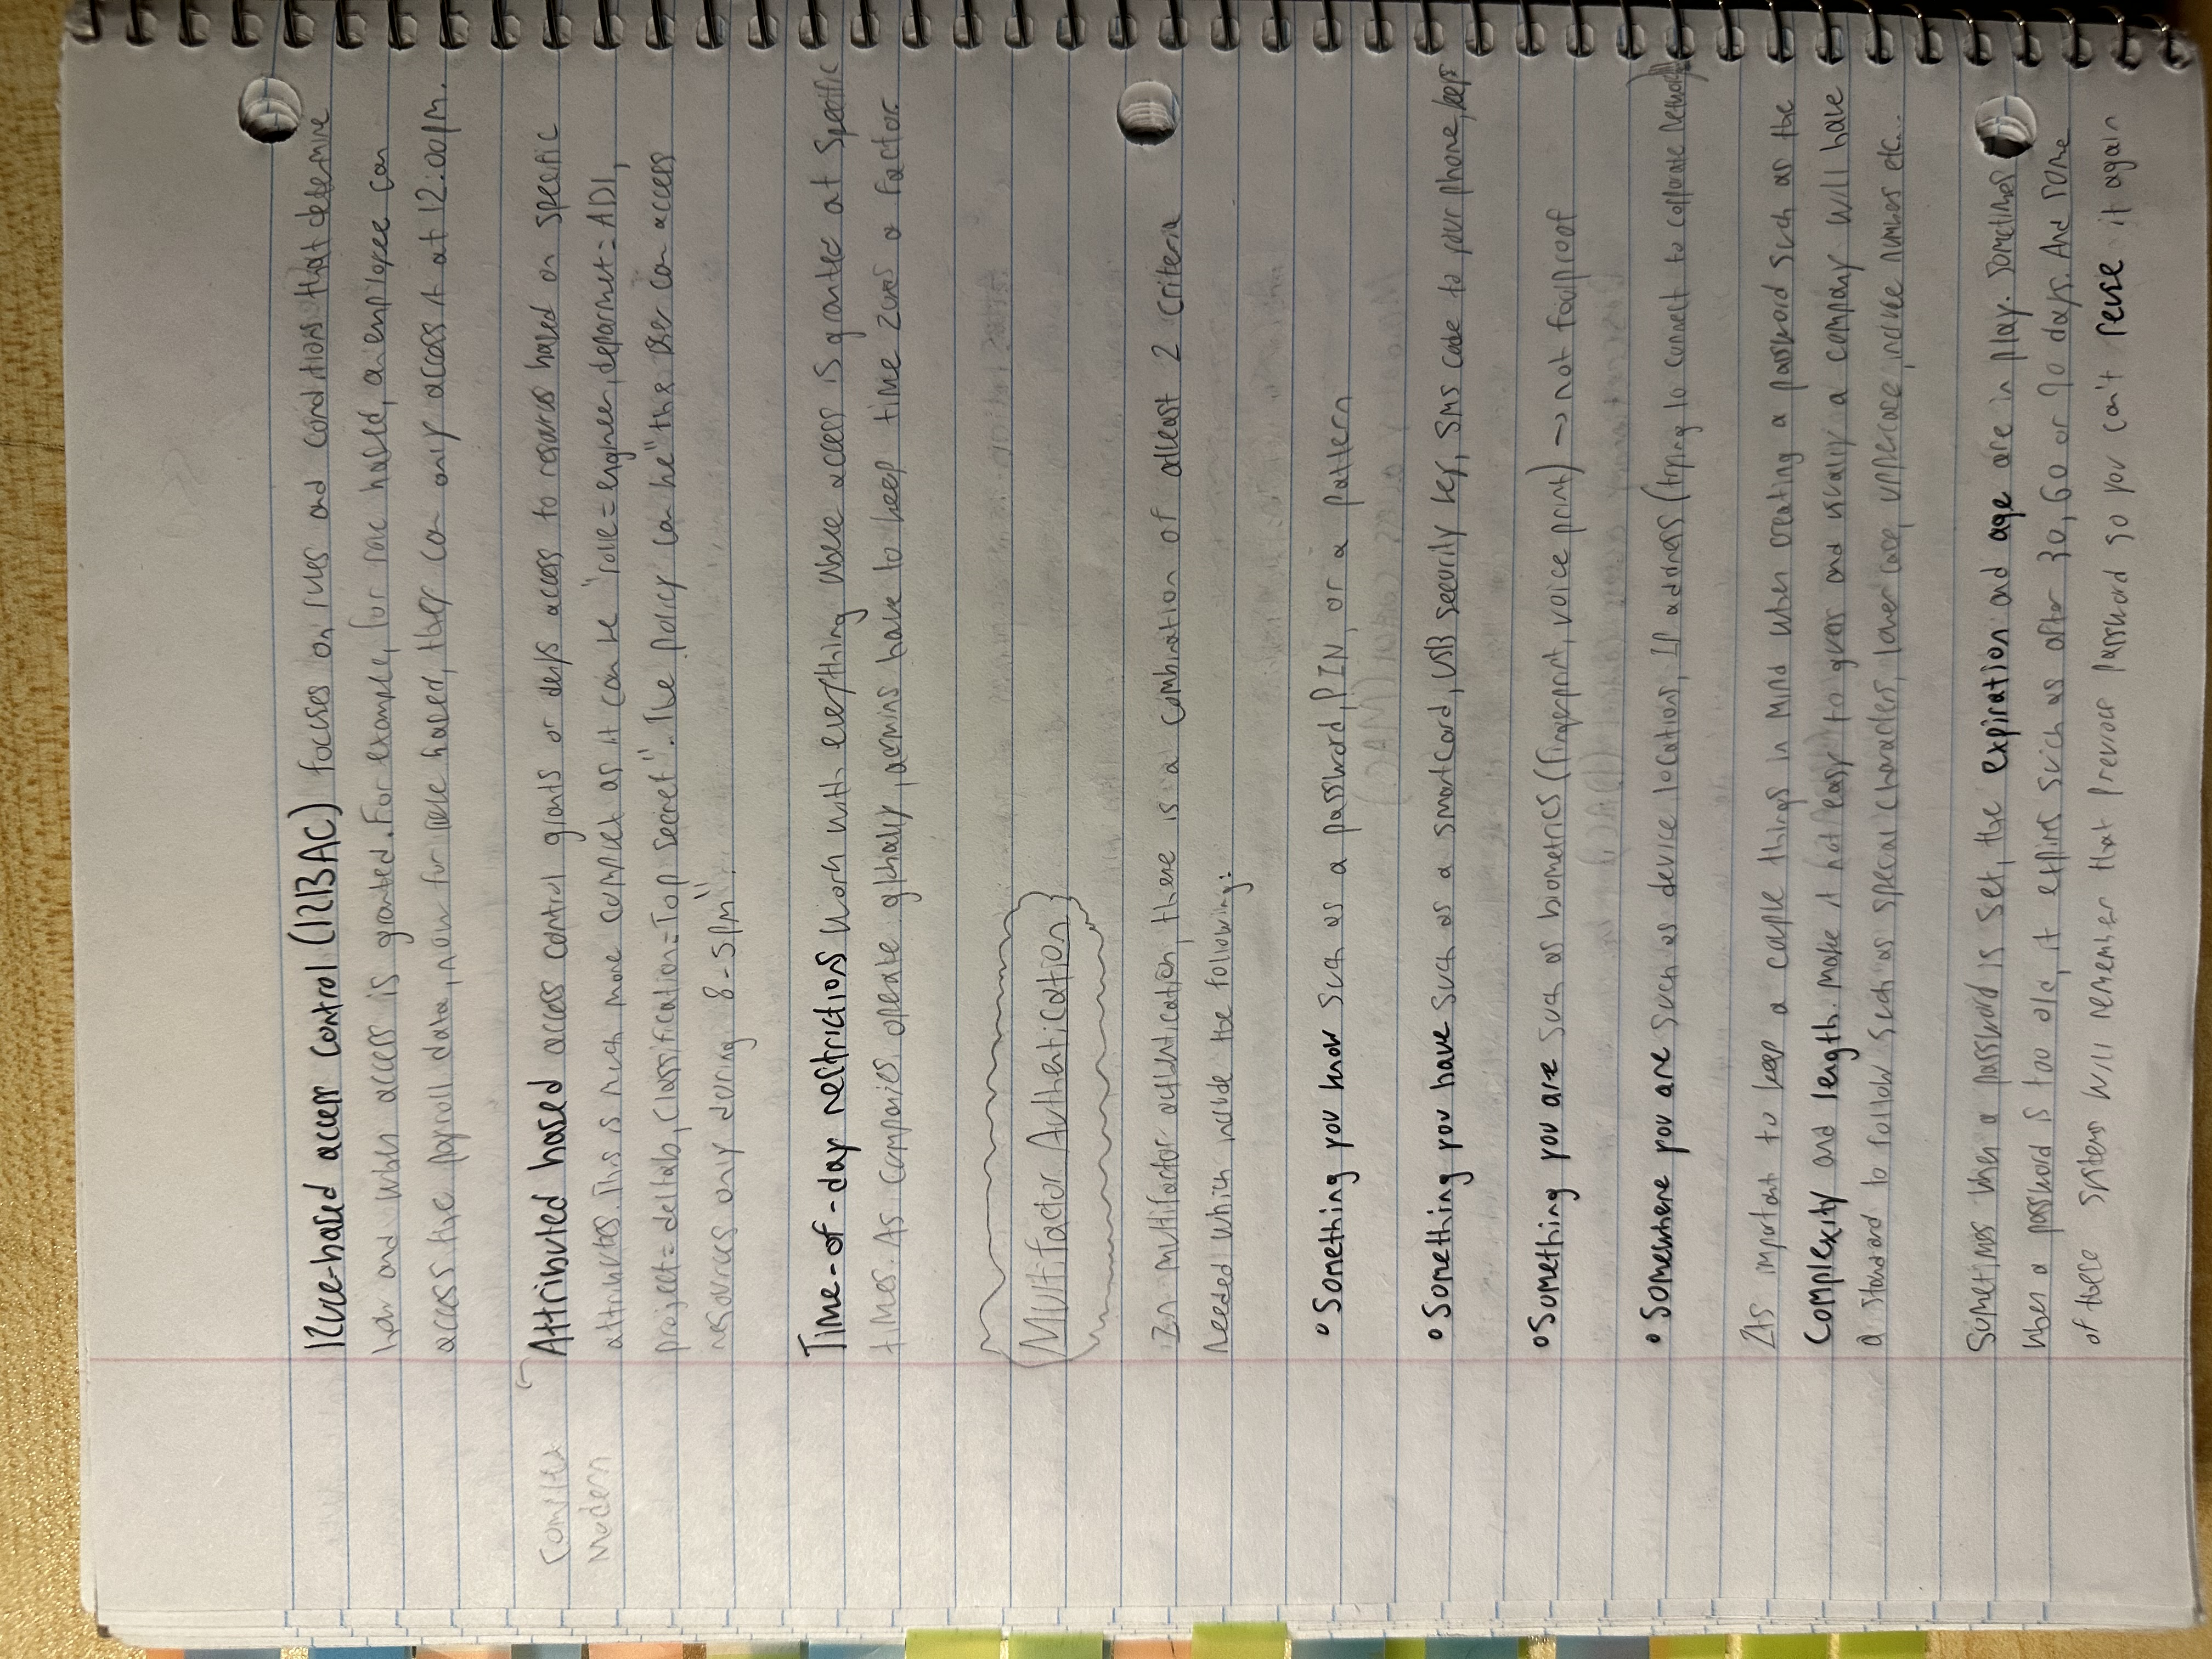 Rule-based access control (RBAC) focuses on rules and conditions that determine
how and when access is granted. For example, for role based, an employee can
access the payroll data, now for rule based, they can only access it at 12:00pm.
Complex
Modern
Attributed based access control grants or denys access to resources based on specific
attributes. This is much more complex as it can be "role=engineer, deparmet=ADI,
project=deltab, classification=Top secret". The policy can be "this user can access
resources only during 8-5pm".
Time-of-day restrictions work with everything where access is granted at specific
times. As companies operate globally, admins have to keep time zones a factor.
Multifactor Authentication
In multifactor authentication, there is a combination of atleast 2 criteria
needed which include the following:
• Something you know such as a password, PIN, or a pattern
• Something you have such as a smartcard, USB security key, SMS code to your phone, keys
• Something you are such as biometrics (fingerprint, voice print) → not foolproof
• Somewhere you are such as device locations, IP address (trying to connect to corporate network)
Its important to keep a couple things in mind when creating a password such as the
complexity and length. Make it not easy to guess and usually a company will have
a standard to follow such as special characters, lower case, uppercase, include numbers etc...
Sometimes when a password is set, the expiration and age are in play. Sometimes
when a password is too old, it expires such as after 30, 60 or 90 days. And some
of these systems will remember that previous password so you can't reuse it again